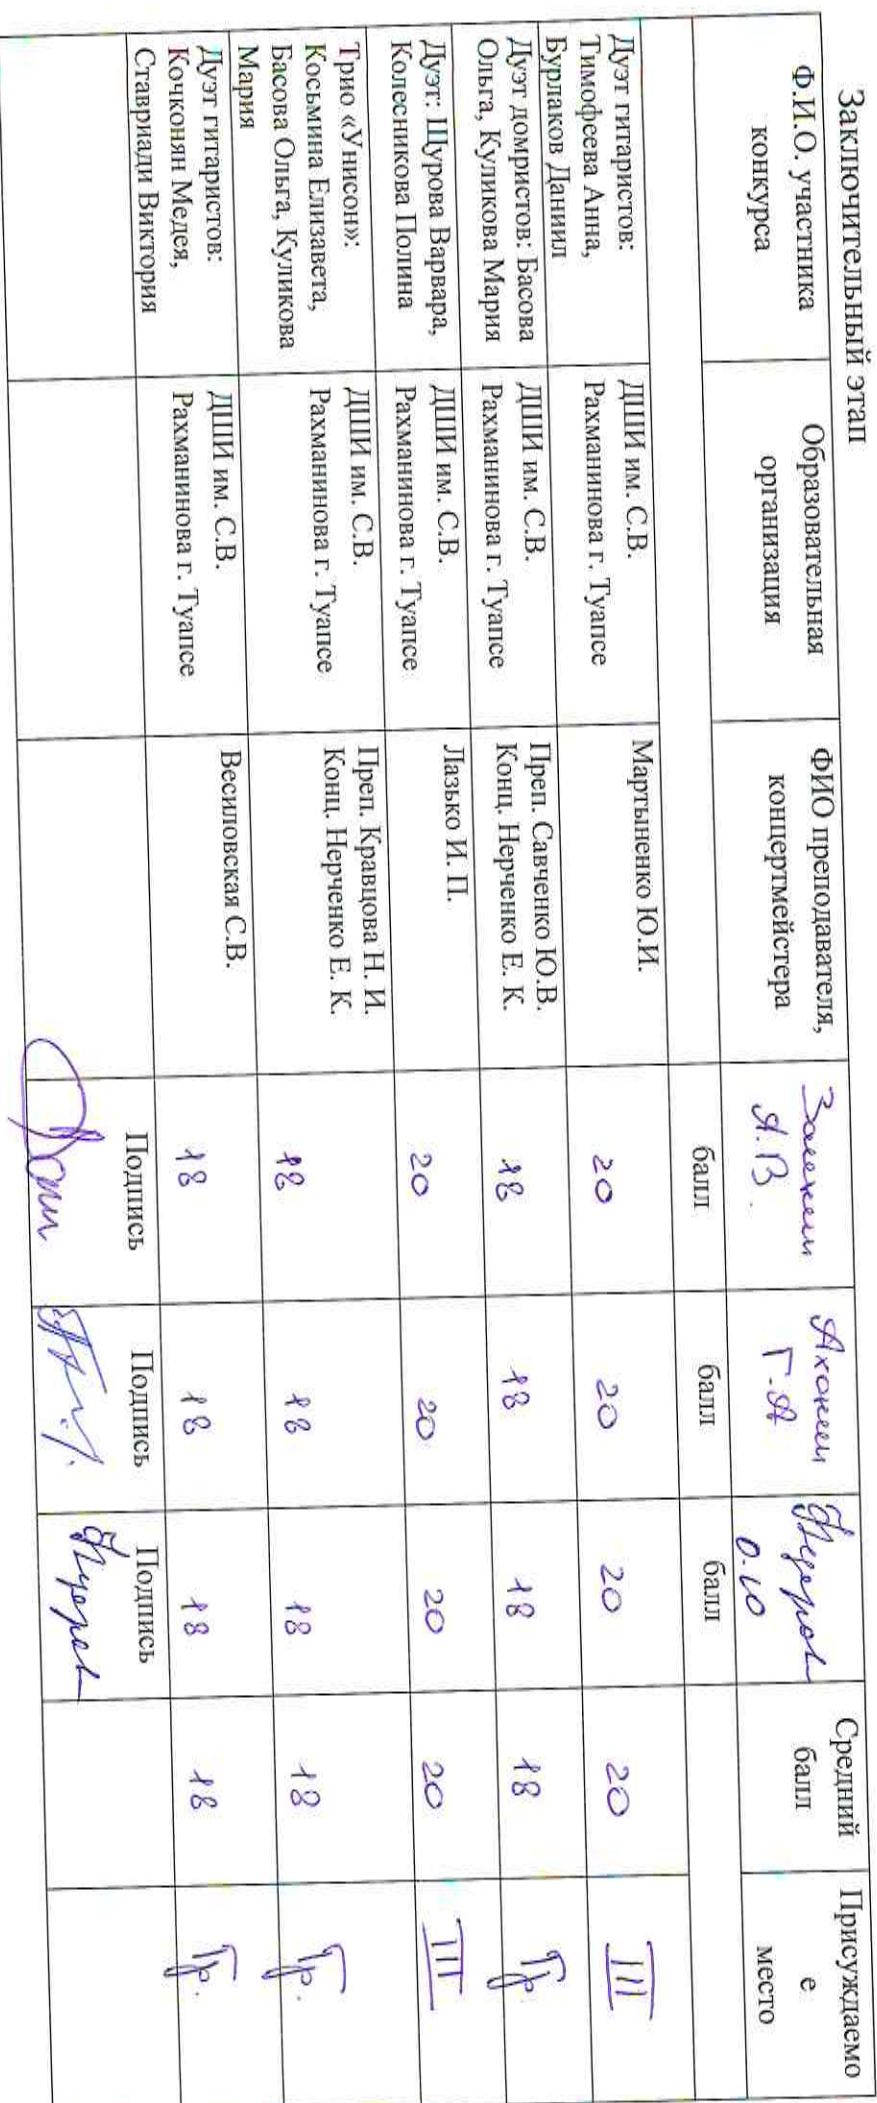 Заключительный этап
Ф.И.О. участника
конкурса
Образовательная
организация
ФИО преподавателя,
концертмейстера
А.В.
Г.А
О.Ю
Средний
балл
Присуждаемо
е
место
балл
балл
балл
Дуэт гитаристов:
Тимофеева Анна,
Бурлаков Даниил
ДШИ им. С.В.
Рахманинова г. Туапсе
Мартыненко Ю.И.
20
20
20
20
III
Дуэт домристов: Басова
Ольга, Куликова Мария
ДШИ им. С.В.
Рахманинова г. Туапсе
Преп. Савченко Ю.В.
Конц. Нерченко Е. К.
18
18
18
18
Гр
Дуэт: Щурова Варвара,
Колесникова Полина
ДШИ им. С.В.
Рахманинова г. Туапсе
Лазько И. П.
20
20
20
20
III
Трио «Унисон»:
Косьмина Елизавета,
Басова Ольга, Куликова
Мария
ДШИ им. С.В.
Рахманинова г. Туапсе
Преп. Кравцова Н. И.
Конц. Нерченко Е. К.
18
18
18
18
Гр.
Дуэт гитаристов:
Кочконян Медея,
Ставриади Виктория
ДШИ им. С.В.
Рахманинова г. Туапсе
Весиловская С.В.
18
18
18
18
Гр.
Подпись
Подпись
Подпись